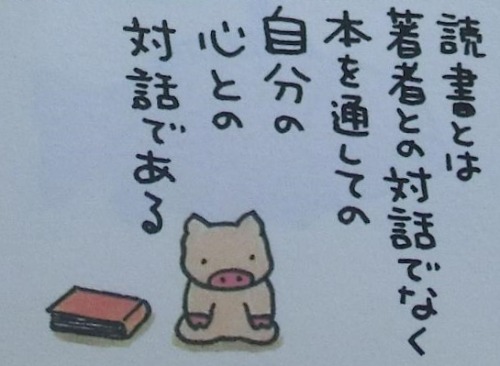 読書とは
著者との対話でなく
本を通しての
自分の
心との
対話である